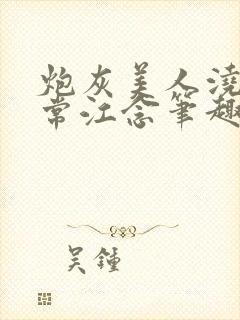 炮灰美人浇
常江念笔趣
吴锺